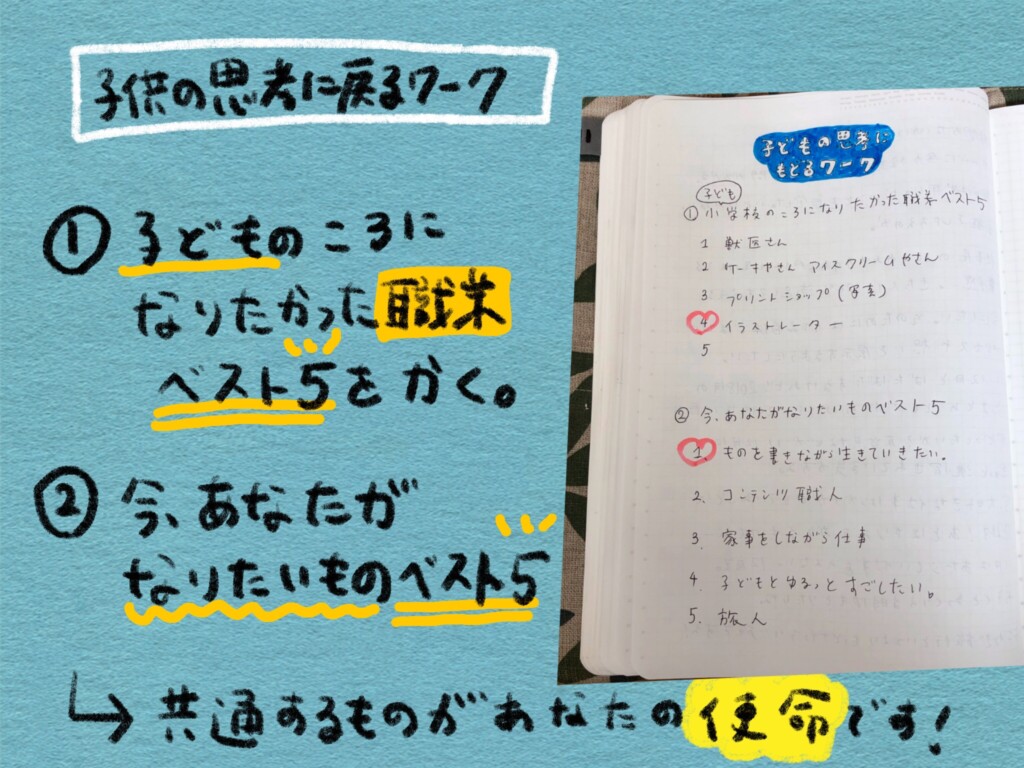 子供の思考に戻るワーク
① 子どものころに
なりたかった職業
ベスト5をかく。
② 今、あなたが
なりたいものベスト5
↳ 共通するものがあなたの使命です!
子どもの思考に
もどるワーク
子ども
① 小学校のころになりたかった職業ベスト5
1 獣医さん
2 ケーキやさん アイスクリームやさん
3 プリントショップ(写真)
4 イラストレーター
5
② 今、あなたがなりたいものベスト5
1. ものを書きながら生きていきたい。
2. コンテンツ職人
3. 家事をしながら仕事
4. 子どもとゆるっとすごしたい。
5. 旅人